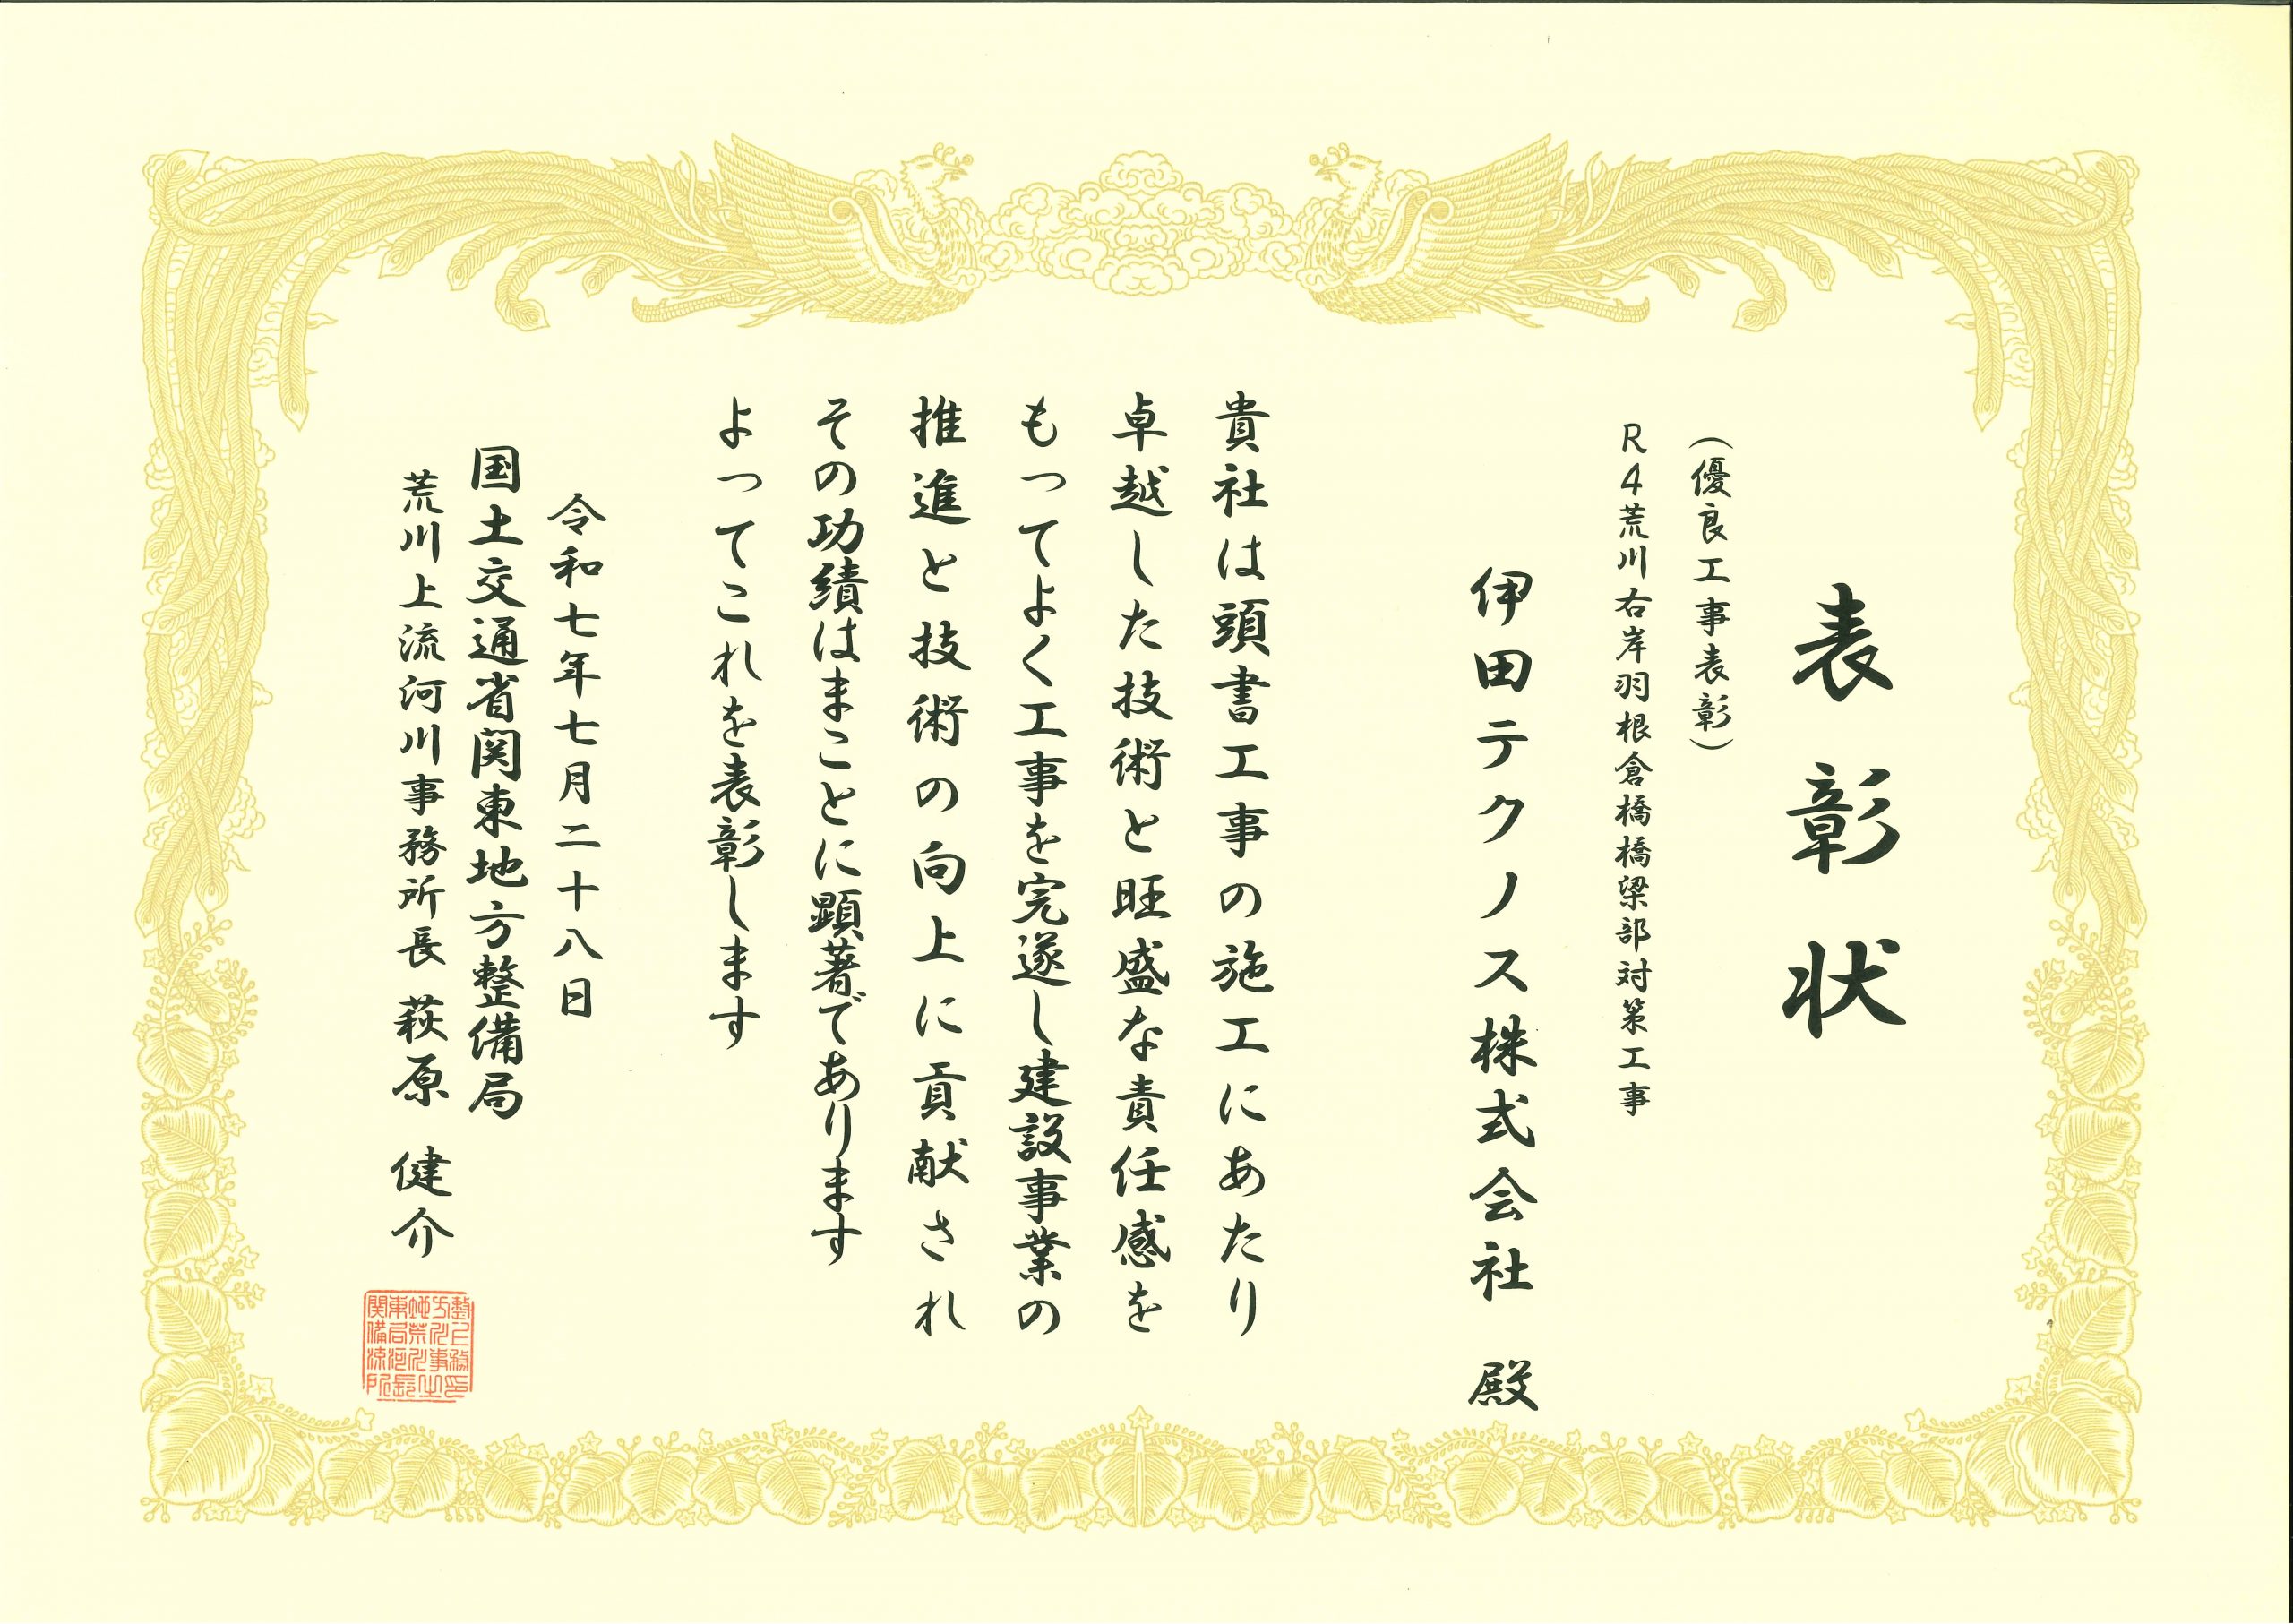 表彰状
(優良工事表彰)
R4荒川右岸羽根倉橋橋梁部対策工事
伊田テクノス株式会社 殿
貴社は頭書工事の施工にあたり
卓越した技術と旺盛な責任感を
もってよく工事を完遂し建設事業の
推進と技術の向上に貢献され
その功績はまことに顕著であります
よってこれを表彰します
令和七年七月二十八日
国土交通省関東地方整備局
荒川上流河川事務所長 萩原 健介